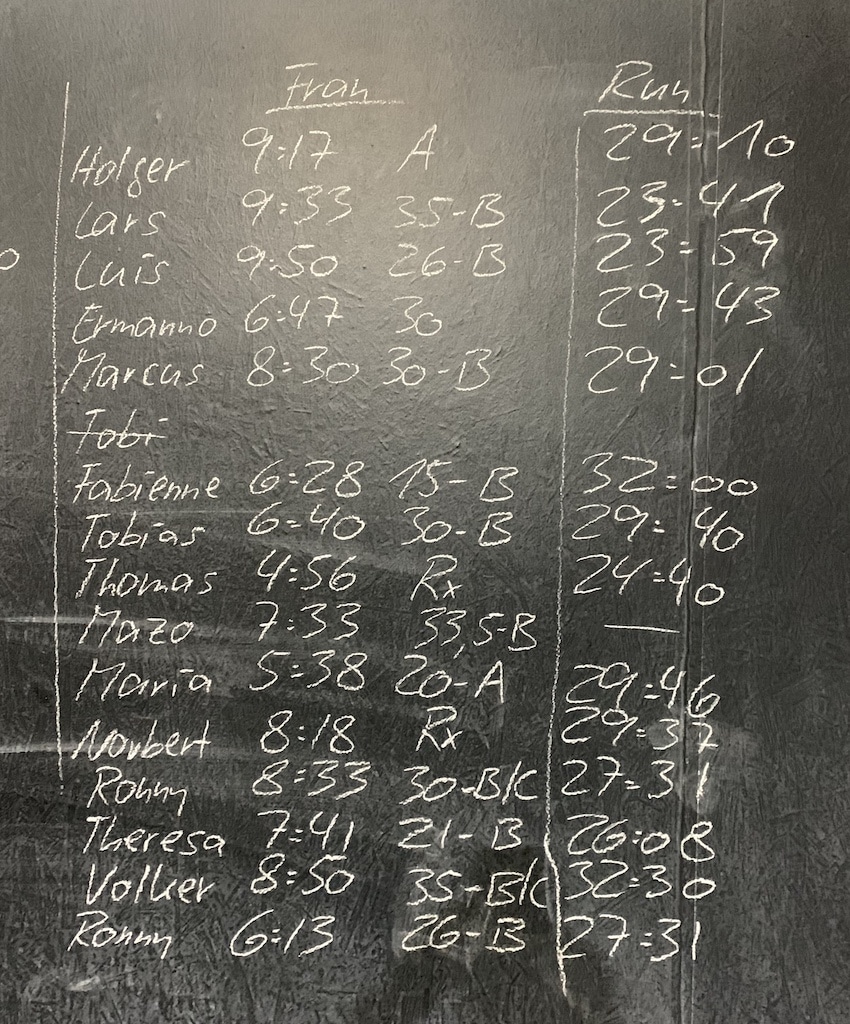 Fran Run
Holger 9:17 A 29:10
Lars 9:33 35-B 23:41
Luis 9:50 26-B 23:59
Ermanno 6:47 30 29:43
Marcus 8:30 30-B 29:01
Tobi
Fabienne 6:28 15-B 32:00
Tobias 6:40 30-B 29:40
Thomas 4:56 Rx 24:40
Mazo 7:33 33,5-B —
Maria 5:38 20-A 29:46
Norbert 8:18 Rx 29:37
Ronny 8:33 30-B/C 27:31
Theresa 7:41 21-B 26:08
Volker 8:50 35-B/C 32:30
Ronny 6:13 26-B 27:31